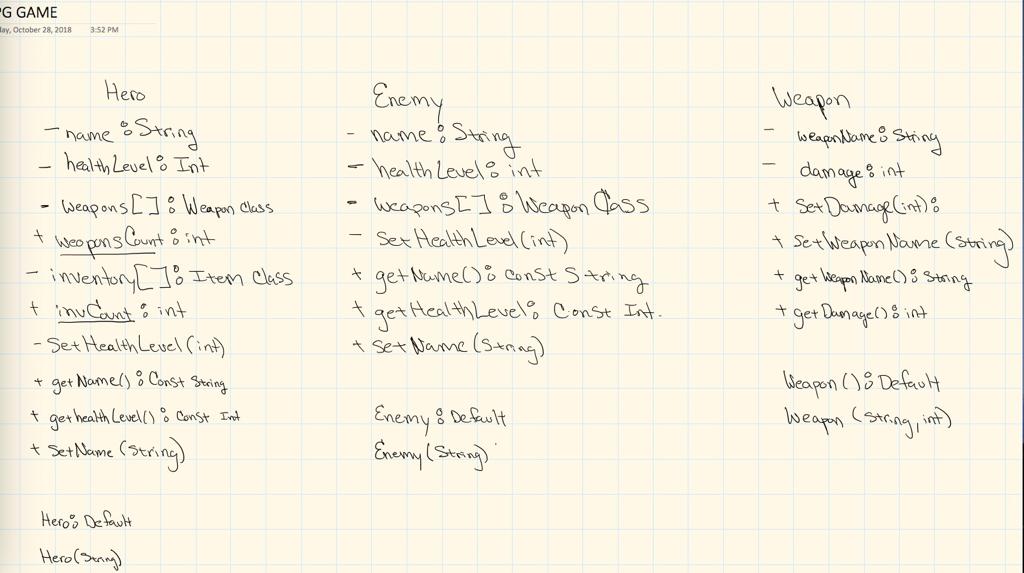 PG GAME
day, October 28, 2018 3:52 PM
Hero
- name : String
- healthLevel : Int
- weapons[] : Weapon Class
+ weaponsCount : int
- inventory[] : Item Class
+ invCount : int
- SetHealthLevel(int)
+ getName() : Const String
+ gethealthLevel() : Const Int
+ SetName (String)
Hero : Default
Hero(String)
Enemy
- name : String
- healthLevel : int
- weapons[] : Weapon Class
- SetHealthLevel(int)
+ getName() : Const String
+ getHealthLevel : Const Int.
+ setName (String)
Enemy : Default
Enemy (String)
Weapon
- weaponName : String
- damage : int
+ SetDamage(int) :
+ SetWeaponName (String)
+ getWeaponName() : String
+ getDamage() : int
Weapon () : Default
Weapon (String, int)